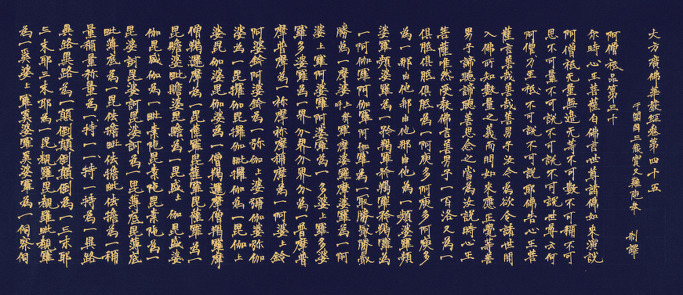 大方廣佛華嚴經卷第四十五
于闐國三藏實叉難陀奉 制譯
阿僧祇品第三十
尒時心王菩薩白佛言世尊諸佛如來演說
阿僧祇無量無邊無等不可數不可稱不可
思不可量不可說不可說不可說世尊云何
阿僧祇乃至不可說不可說耶佛告心王菩
薩言善哉善哉善男子汝今為欲令諸世間
入佛所知數量之義而問如來應正等覺善
男子諦聽諦聽善思念之當為汝說時心王
菩薩唯然受教佛言善男子一百洛叉為一
俱胝俱胝俱胝為一阿庾多阿庾多阿庾多
為一那由他那由他那由他為一頻婆羅頻
婆羅頻婆羅為一矜羯羅矜羯羅矜羯羅為
一阿伽羅阿伽羅阿伽羅為一最勝最勝最
勝為一摩婆上聲呼羅摩婆羅摩婆羅為一阿
婆上羅阿婆羅阿婆羅為一多婆上羅多婆
羅多婆羅為一界分界分界分為一普摩普
摩普摩為一禰摩禰摩禰摩為一阿婆上鈐
阿婆鈐阿婆鈐為一彌伽上婆彌伽婆彌伽
婆為一毘攞伽毘攞伽毘攞伽為一毘伽上
婆毘伽婆毘伽婆為一僧羯邏摩僧羯邏摩
僧羯邏摩為一毘薩羅毘薩羅毘薩羅為一
毘贍婆毘贍婆毘贍婆為一毘盛上伽毘盛
伽毘盛伽為一毘素陀毘素陀毘素陀為一
毘婆訶毘婆訶毘婆訶為一毘薄底毘薄底
毘薄底為一毘佉擔毘佉擔毘佉擔為一稱
量稱量稱量為一一持一持一持為一異路
異路異路為一顛倒顛倒顛倒為一三末耶
三末耶三末耶為一毘覩羅毘覩羅毘覩羅
為一奚婆上羅奚婆羅奚婆羅為一伺察伺